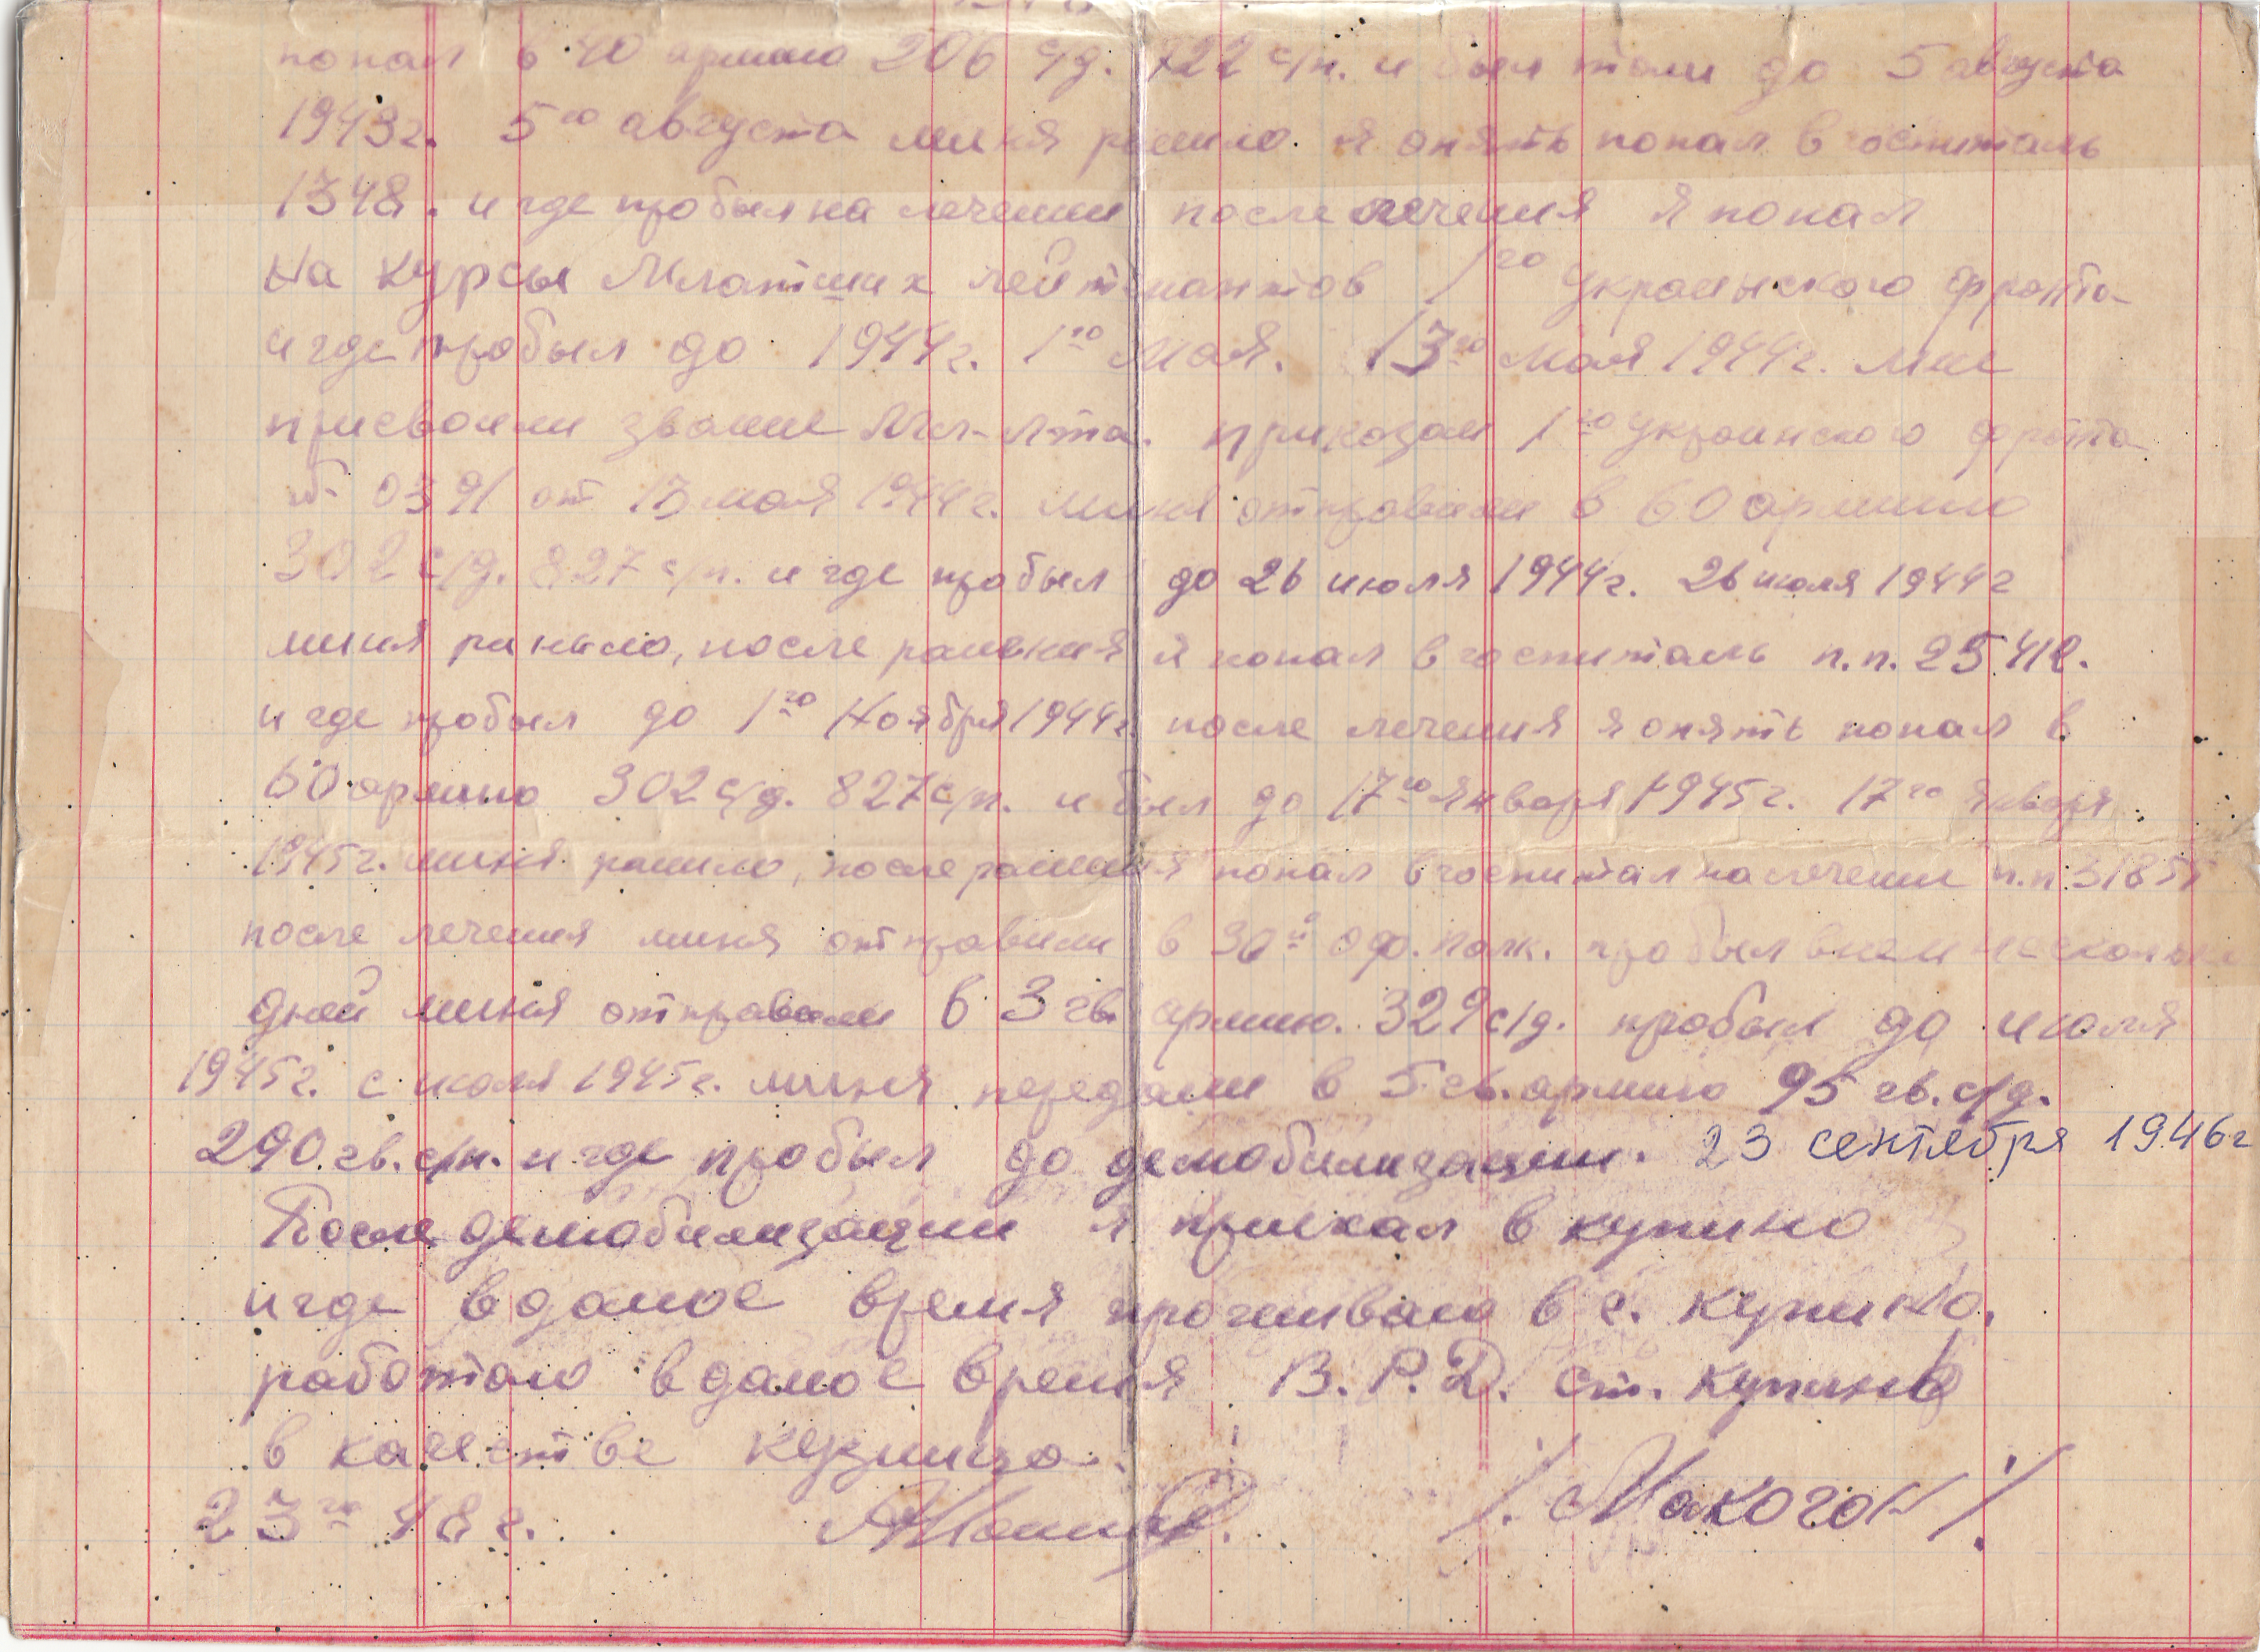 попал в 40 армию 206 с/д. 722 с/п. и был там до 5 августа
1943г. 5го августа миня ранило. я опять попал в госпиталь
1348. и где пробыл на лечении после лечения я попал
на курсы Млатших лейтенантов 1го украинского фронта
и где пробыл до 1944г. 1го мая. 13го мая 1944г. мне
присвоили звание Мл-л-та. приказам 1го украинского фронта
№ 0391 от 13 мая 1944г. миня отправили в 60 армию
302 с/д. 827 с/п. и где пробыл до 26 июля 1944г. 26 июля 1944г
миня ранило, после ранения я попал в госпиталь п.п. 25412.
и где пробыл до 1го Ноября 1944г. после лечения я опять попал в
60 армию 302 с/д. 827 с/п. и был до 17го Января 1945г. 17го января
1945г. миня ранило, после ранения попал в госпитал на лечение п.п. 31855
после лечения миня отправили в 30й офр. полк. пробыл в нем несколько
дней миня отправили в 3 гв армию. 329 с/д. пробыл до июля
1945г. с июля 1945г. миня передали в 5 гв. армию 95 гв. с/д.
290 гв. с/п. и где пробыл до демобилизации. 23 сентября 1946г
После демобилизации я приехал в купино
и где в даное время прочиваю в с. купино.
работаю в даное время В.Р.Д. ст. купино
в качестве кузница.
23го 48г. /. Макогон ./